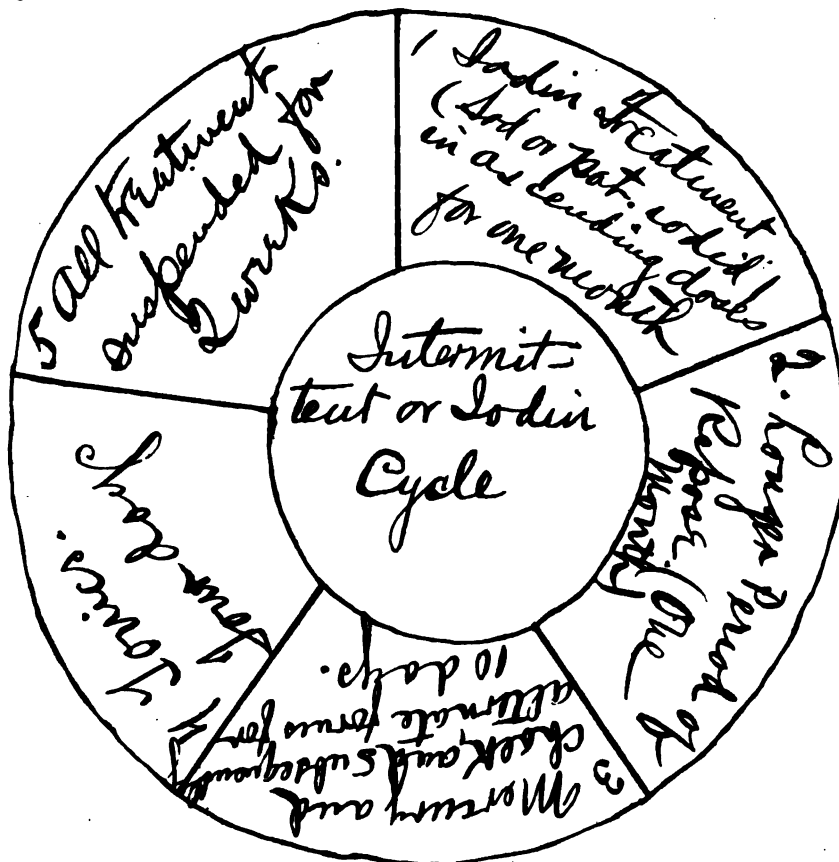 Intermit-
tent or Iodin
Cycle
1 Iodin treatment
(Sod or pot. iodid)
in ascending doses
for one month
2. Longer Period of
Repose. (One
month)
3 Mercury and
chalk, and subsequently
alternate forms for
10 days.
4 Four days
Tonics.
5 All treatment
suspended for
2 weeks.